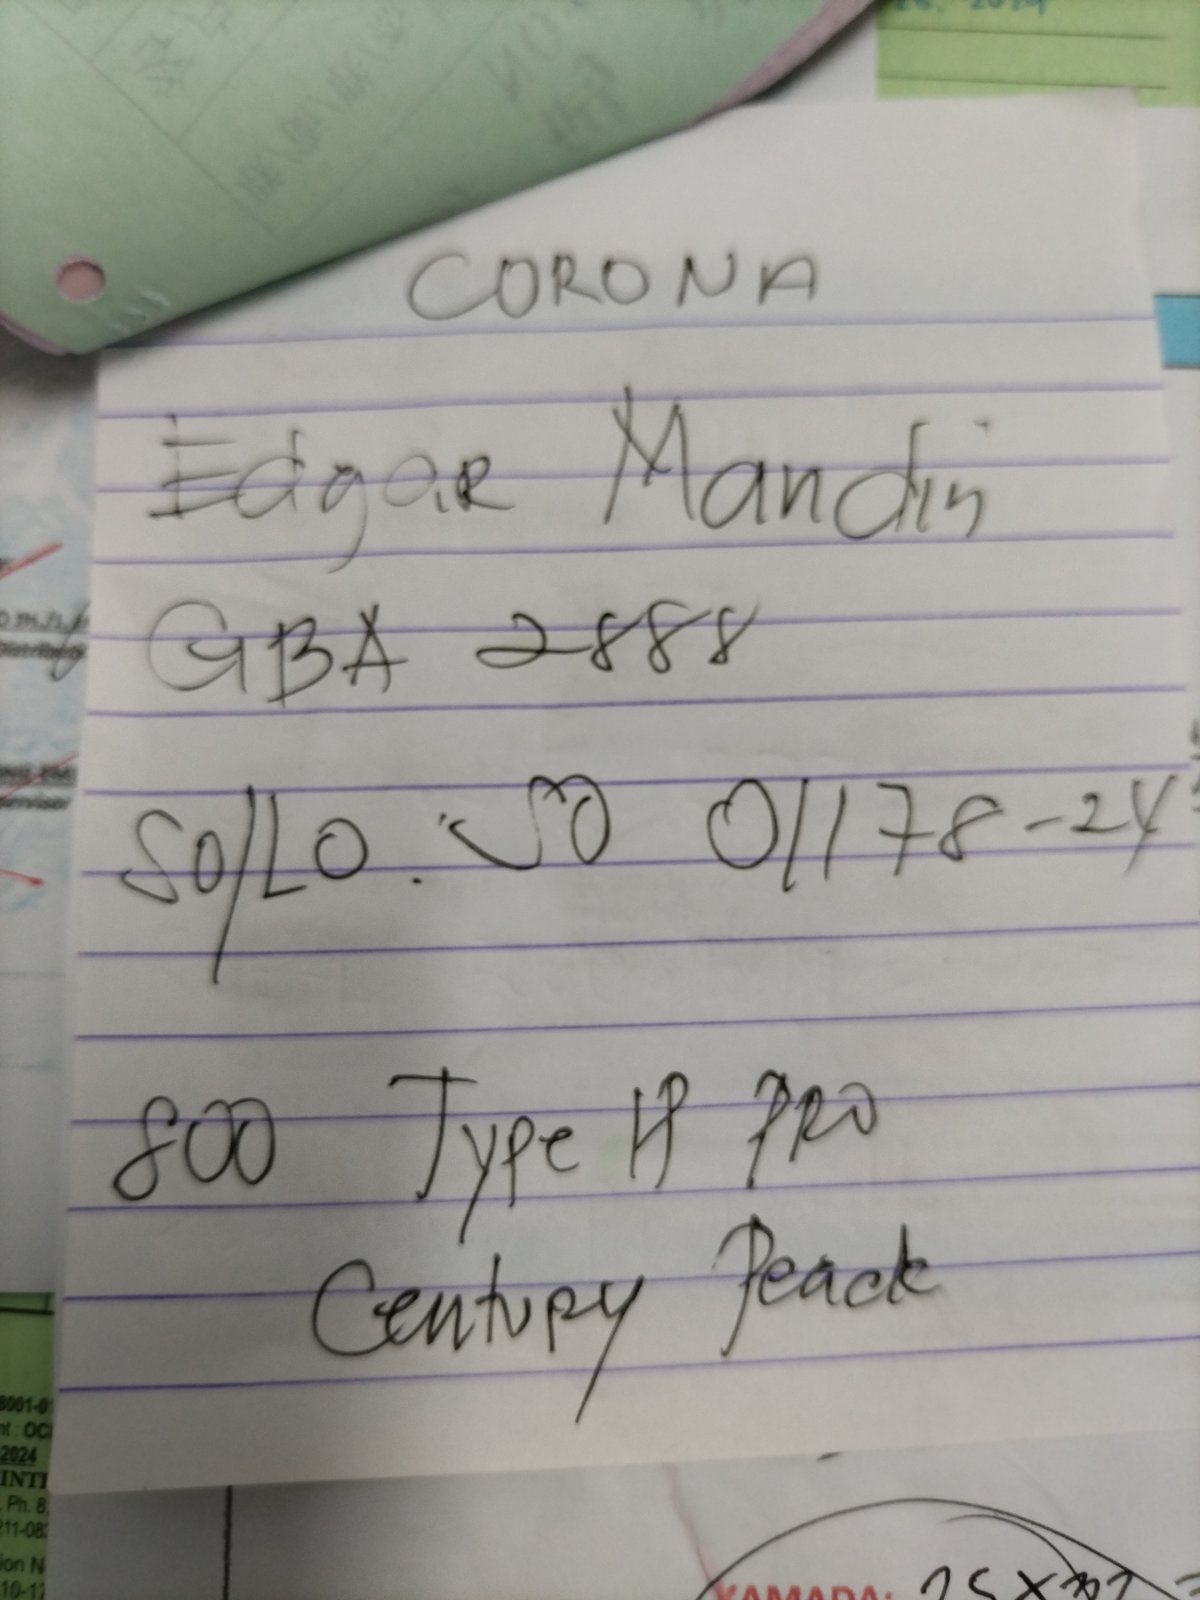 CORONA
Edgar Mandin
GBA 2888
SO/LO. SO 01178-24
800 Type 1P PRO
Century Peack
8001-0
2024
Ph. 8,
211-08
ion N
10-12
KAMADA: